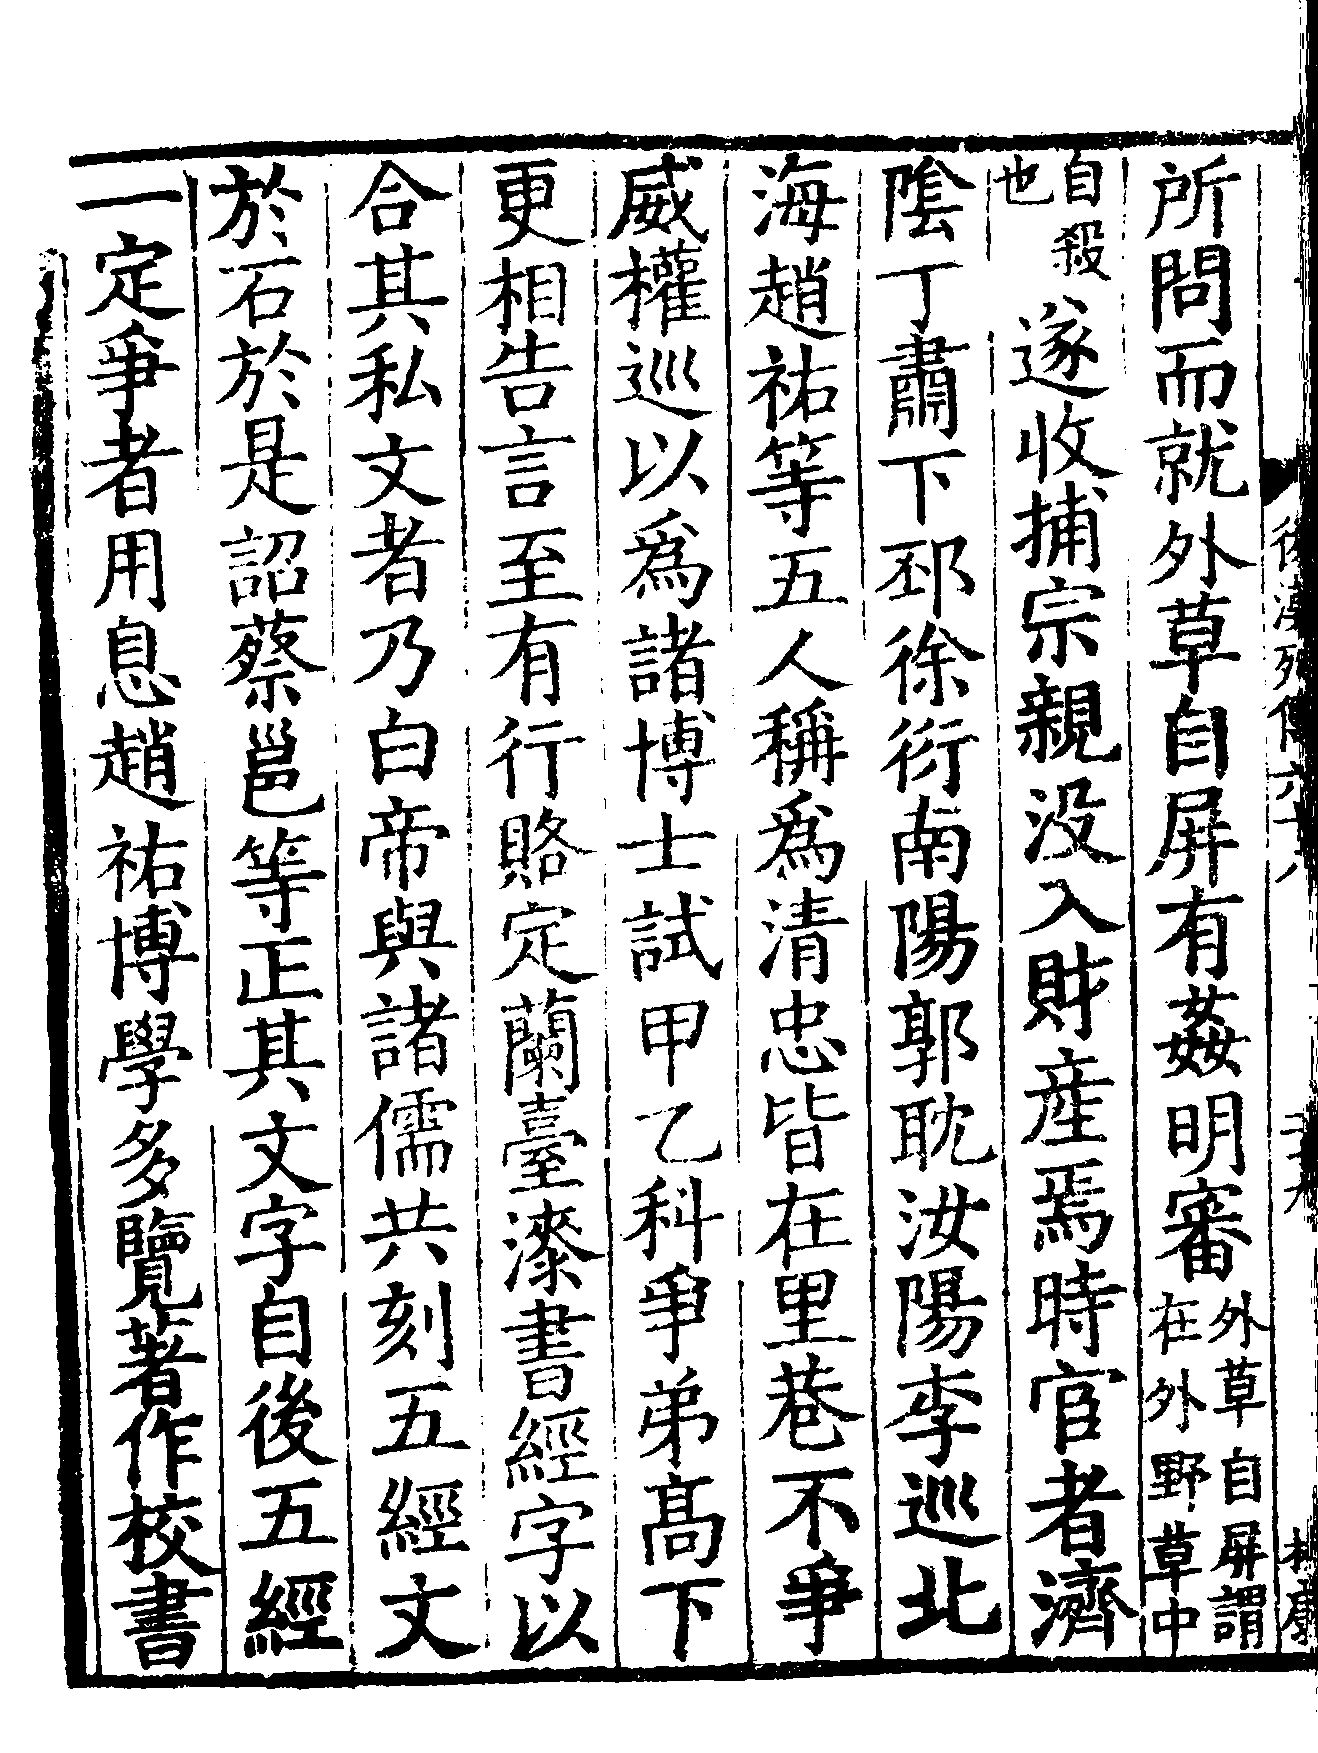 所問而就外草自屏有姦明審外草自屏謂在外野草中
自殺也遂收捕宗親没入財産焉時宦者濟
隂丁肅下邳徐衍南陽郭耽汝陽李巡北
海趙祐等五人稱為清忠皆在里巷不爭
威權巡以為諸博士試甲乙科爭弟髙下
更相告言至有行賂定蘭臺漆書經字以
合其私文者乃白帝與諸儒共刻五經文
於石於是詔蔡邕等正其文字自後五經
一定爭者用息趙祐博學多覽著作校書